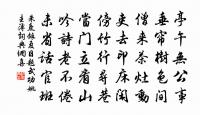 亭午無公事
垂簾樹色間
僧来茶灶動
吏去印床閑
傍竹行尋巷
當門立看山
吟詩老不倦
未省話官班
朱慶餘夏日題武功姚
主簿詞典網書